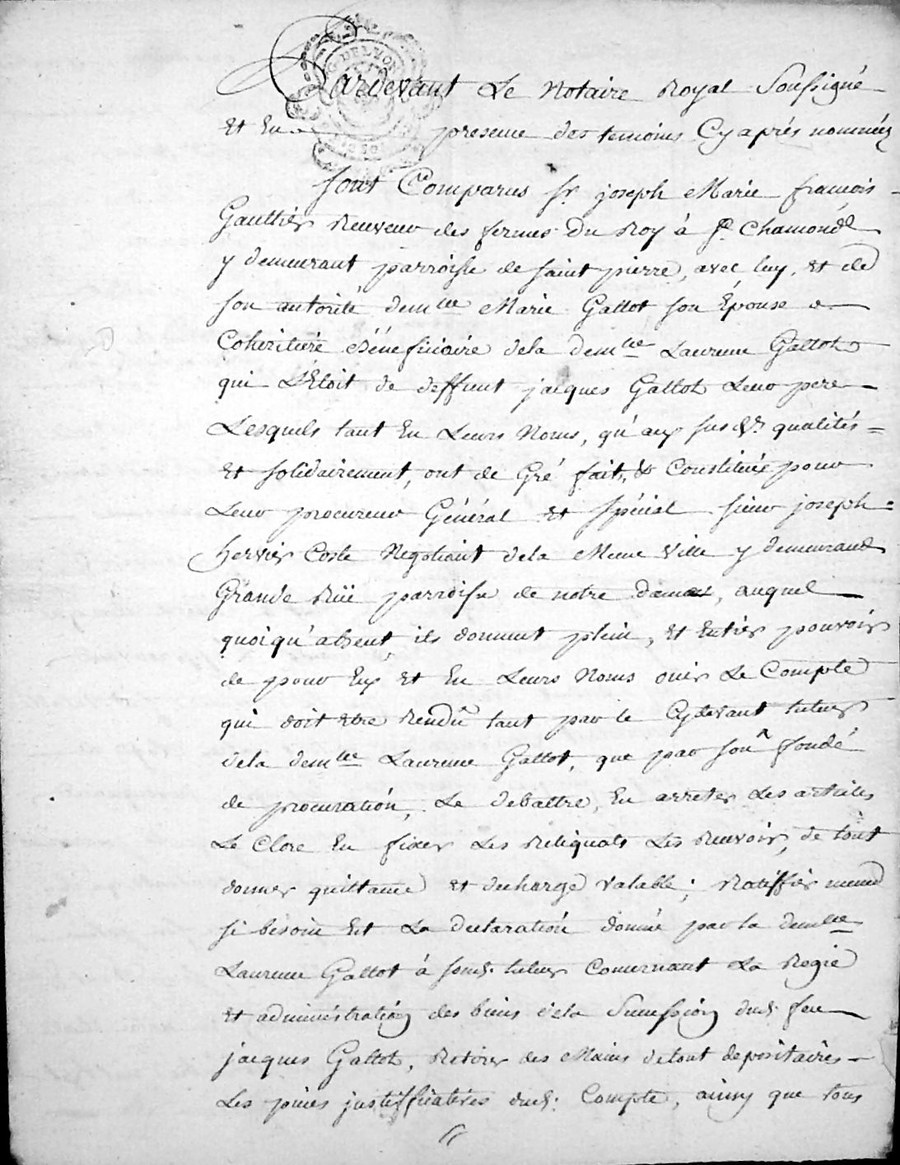 G. DE LYON
Pardevant Le Notaire Royal Soussigné
Et En presence des temoins Cy après nommés
sont Comparus Sr. joseph Marie francois
Gauthier Receveur des fermes Du Roy à St. Chamond
y demeurant parroisse de saint pierre, avec luy, et de
son autorité demlle Marie Gallot son Épouse
Coheritiére Bénéficiaire dela demlle Laurence Gallot
qui L'Etoit de deffunt jacques Gallot Leur pere
Lesquels tant En Leurs Noms, qu'aux susds. qualités =
et solidairement, ont de Gré fait, & Constitué pour
Leur procureur Général et Spécial sieur joseph =
hervier Coste Negotiant dela Meme Ville y demeurant
Grande Rüe parroisse de notre dame, auquel
quoiqu'absent ils donnent plein, Et Entier pouvoir
de pour Eux Et En Leurs Noms ouir Le Compte
qui doit etre Rendû tant par le Cydevant tuteur
dela demlle Laurence Gallot, que par son fondé
de procuration, Le debattre, En arreter Les articles
Le Clore En fixer Les Reliquats Les Recevoir, de tout
donner quittance et decharge valable; Ratiffier meme
si besoin Est La declaration donné par la demlle
Laurence Gallot à sond. tuteur Concernant La Regie
et administration des biens dela Succession dud. feu
jacques Gallot, Retirer des Mains detout depositaires
Les pieces justifficatives dud. Compte, ainsy que tous